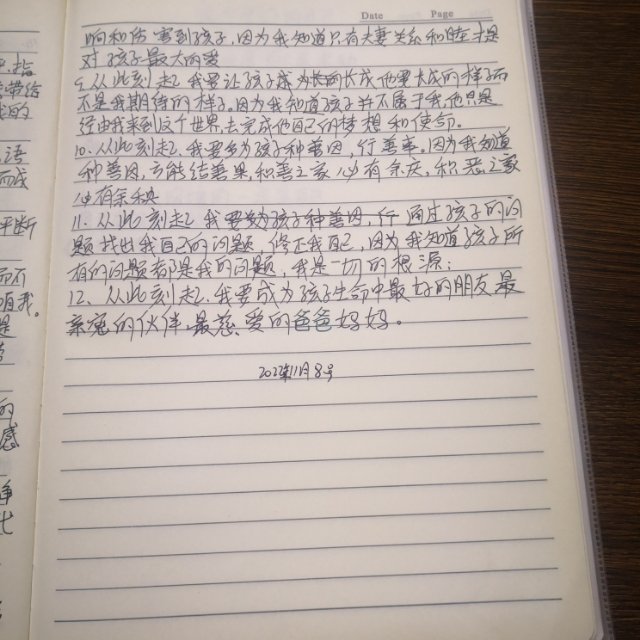 Date Page
响和伤害到孩子,因为我知道只有夫妻关系和睦才是
对孩子最大的爱
9.从此刻起我要让孩子成为长的长成他要长成的样子而
不是我期待的样子.因为我知道孩子并不属于我,他只是
经由我来到这个世界,去完成他自己的梦想和使命.
10.从此刻起.我要多为孩子种善因,行善事.因为我知道
种善因,方能结善果,积善之家必有余庆,积恶之家
必有余殃
11.从此刻起.我要多为孩子种善因,行通过孩子的问
题找出我自己的问题,修正我自己,因为我知道孩子所
有的问题都是我的问题,我是一切的根源;
12、从此刻起.我要成为孩子生命中最好的朋友最
亲密的伙伴.最慈爱的爸爸妈妈。
2022年11月8号
指
语
而成
平断
而不
自我。
是
的
感
净
比